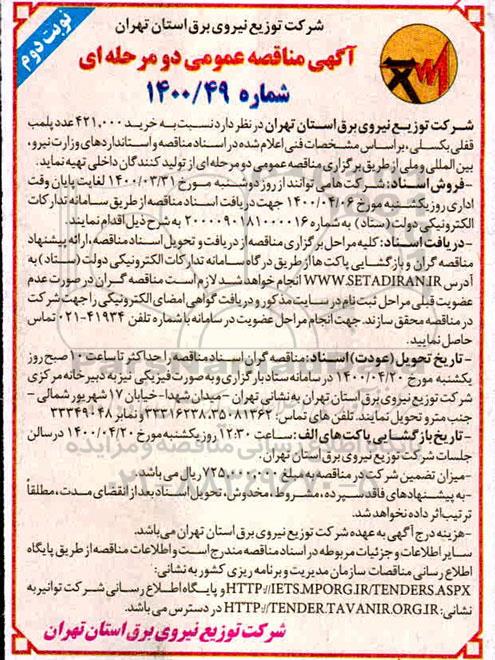 نوبت دوم
شرکت توزیع نیروی برق استان تهران
آگهی مناقصه عمومی دو مرحله ای
شماره ۱۴۰۰/۴۹
شرکت توزیع نیروی برق استان تهران در نظر دارد نسبت به خرید ۴۲۱,۰۰۰ عدد پلمب
قفلی بکسلی، براساس مشخصات فنی اعلام شده در اسناد مناقصه و استانداردهای وزارت نیرو،
بین المللی و ملی از طریق برگزاری مناقصه عمومی دو مرحله ای از تولید کنندگان داخلی تهیه نماید.
-فروش اسناد: شرکت ها می توانند از روز دوشنبه مورخ ۱۴۰۰/۰۳/۳۱ لغایت پایان وقت
اداری روز یکشنبه مورخ ۱۴۰۰/۰۴/۰۶ جهت دریافت اسناد مناقصه از طریق سامانه تدارکات
الکترونیکی دولت (ستاد) به شماره ۲۰۰۰۰۹۰۱۸۱۰۰۰۰۱۶ به شرح ذیل اقدام نمایند.
-دریافت اسناد: کلیه مراحل برگزاری مناقصه از دریافت و تحویل اسناد مناقصه، ارائه پیشنهاد
مناقصه گران و بازگشایی پاکت ها از طریق درگاه سامانه تدارکات الکترونیکی دولت (ستاد) به
آدرس WWW.SETADIRAN.IR انجام خواهد شد لازم است مناقصه گران در صورت عدم
عضویت قبلی مراحل ثبت نام در سایت مذکور و دریافت گواهی امضای الکترونیکی را جهت شرکت
در مناقصه محقق سازند. جهت انجام مراحل عضویت در سامانه با شماره تلفن ۴۱۹۳۴-۰۲۱ تماس
حاصل نمایید.
-تاریخ تحویل (عودت) اسناد: مناقصه گران اسناد مناقصه را حداکثر تا ساعت ۱۰ صبح روز
یکشنبه مورخ ۱۴۰۰/۰۴/۲۰ در سامانه ستاد بارگذاری و به صورت فیزیکی نیز به دبیرخانه مرکزی
شرکت توزیع نیروی برق استان تهران به نشانی تهران - میدان شهدا- خیابان ۱۷ شهریور شمالی -
جنب مترو تحویل نمایند. تلفن های تماس: ۳۵۰۸۱۳۶۲، ۳۳۳۱۶۲۳۸ و نمابر ۳۳۳۴۹۰۴۸
-تاریخ بازگشایی پاکت های الف: ساعت ۱۲:۳۰ روز یکشنبه مورخ ۱۴۰۰/۰۴/۲۰ در سالن
جلسات شرکت توزیع نیروی برق استان تهران.
-میزان تضمین شرکت در مناقصه به مبلغ ۷۲۵,۰۰۰,۰۰۰ ریال می باشد.
-به پیشنهادهای فاقد سپرده، مشروط، مخدوش، تحویل اسناد بعد از انقضای مدت، مطلقاً
ترتیب اثر داده نخواهد شد.
-هزینه درج آگهی به عهده شرکت توزیع نیروی برق استان تهران می باشد.
سایر اطلاعات و جزئیات مربوطه در اسناد مناقصه مندرج است و اطلاعات مناقصه از طریق پایگاه
اطلاع رسانی مناقصات سازمان مدیریت و برنامه ریزی کشور به نشانی:
HTTP://IETS.MPORG.IR/TENDERS.ASPX و پایگاه اطلاع رسانی شرکت توانیر به
نشانی: HTTP://TENDER.TAVANIR.ORG.IR در دسترس می باشد.
شرکت توزیع نیروی برق استان تهران